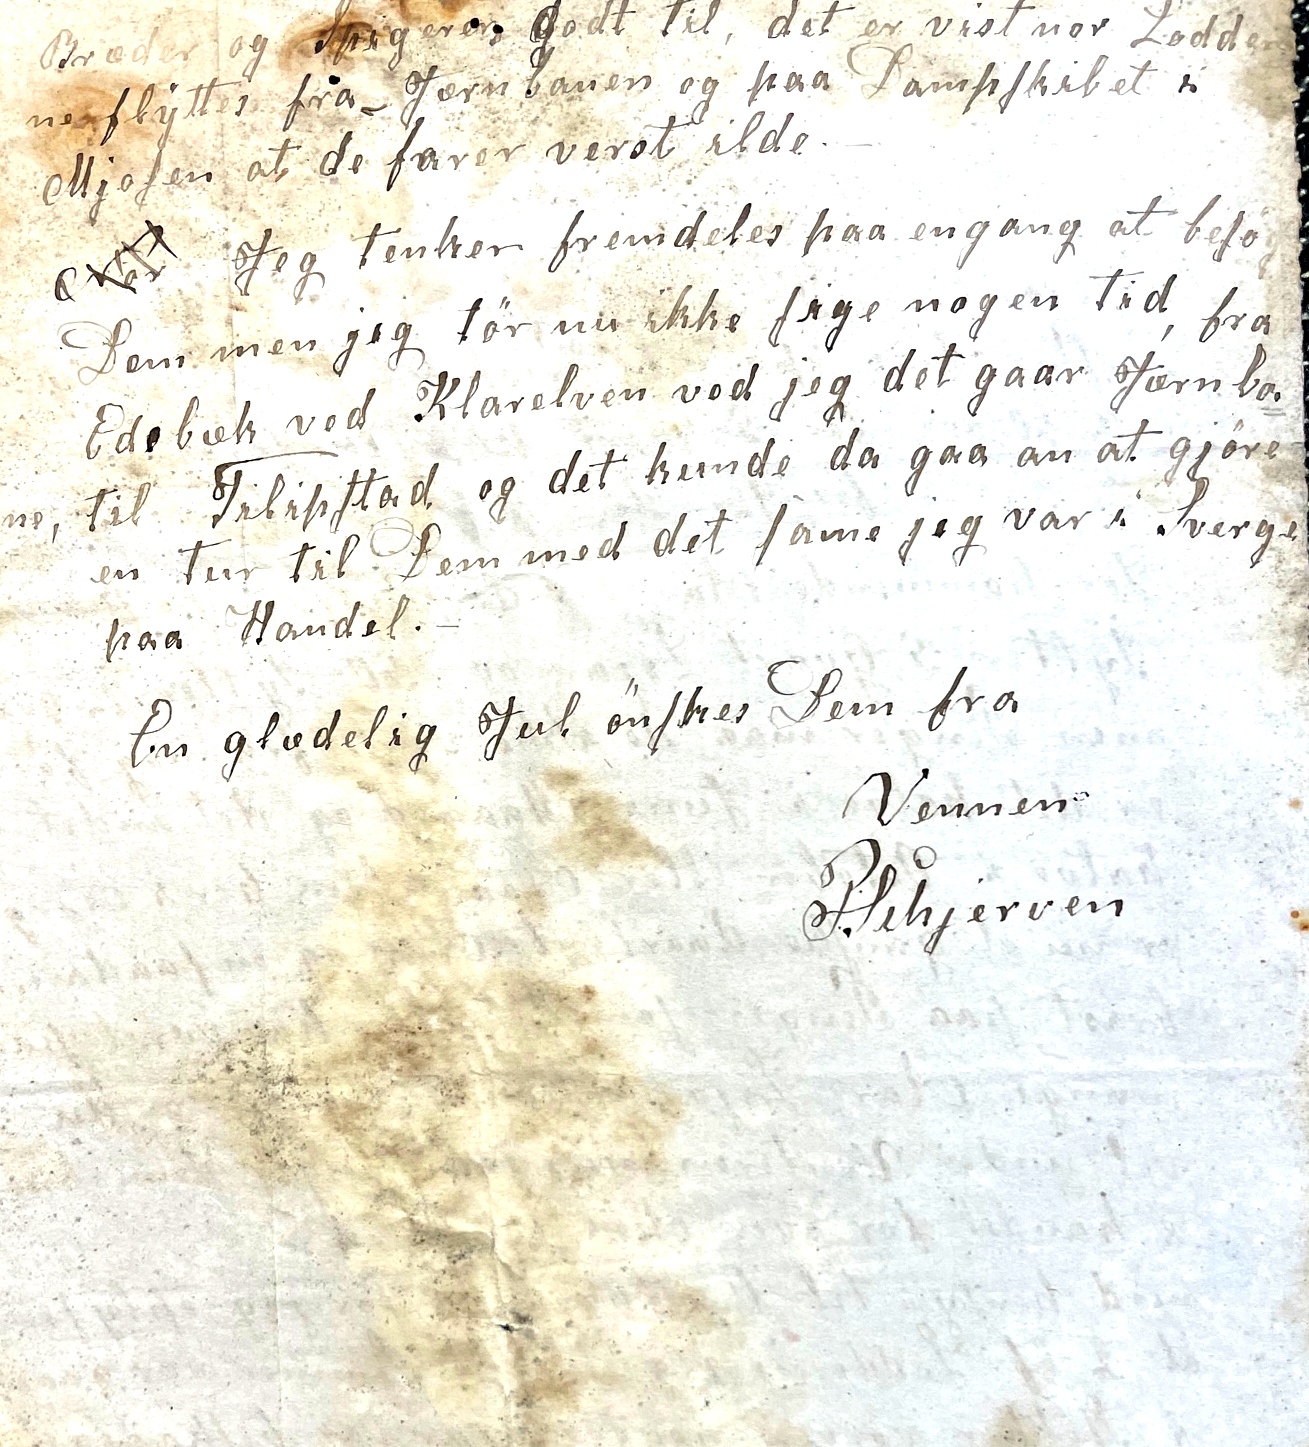 Bræder og Spigeren godt til, det er vist nor Lodden
ne flyttes fra Jærnbanen og paa Dampskibet i
Mjøsen at de farer verst ilde. —
Jeg tenker fremdeles paa engang at besøg
Dem men jeg tör nu ikke sige nogen tid, fra
Edsbæk ved Klarelven ved jeg det gaar Jærnba=
ne, til Filipstad og det kunde da gaa an at gjöre
en tur til Dem med det same jeg var i Sverge
paa Handel. —
En glædelig Jul önskes Dem fra
Vennen